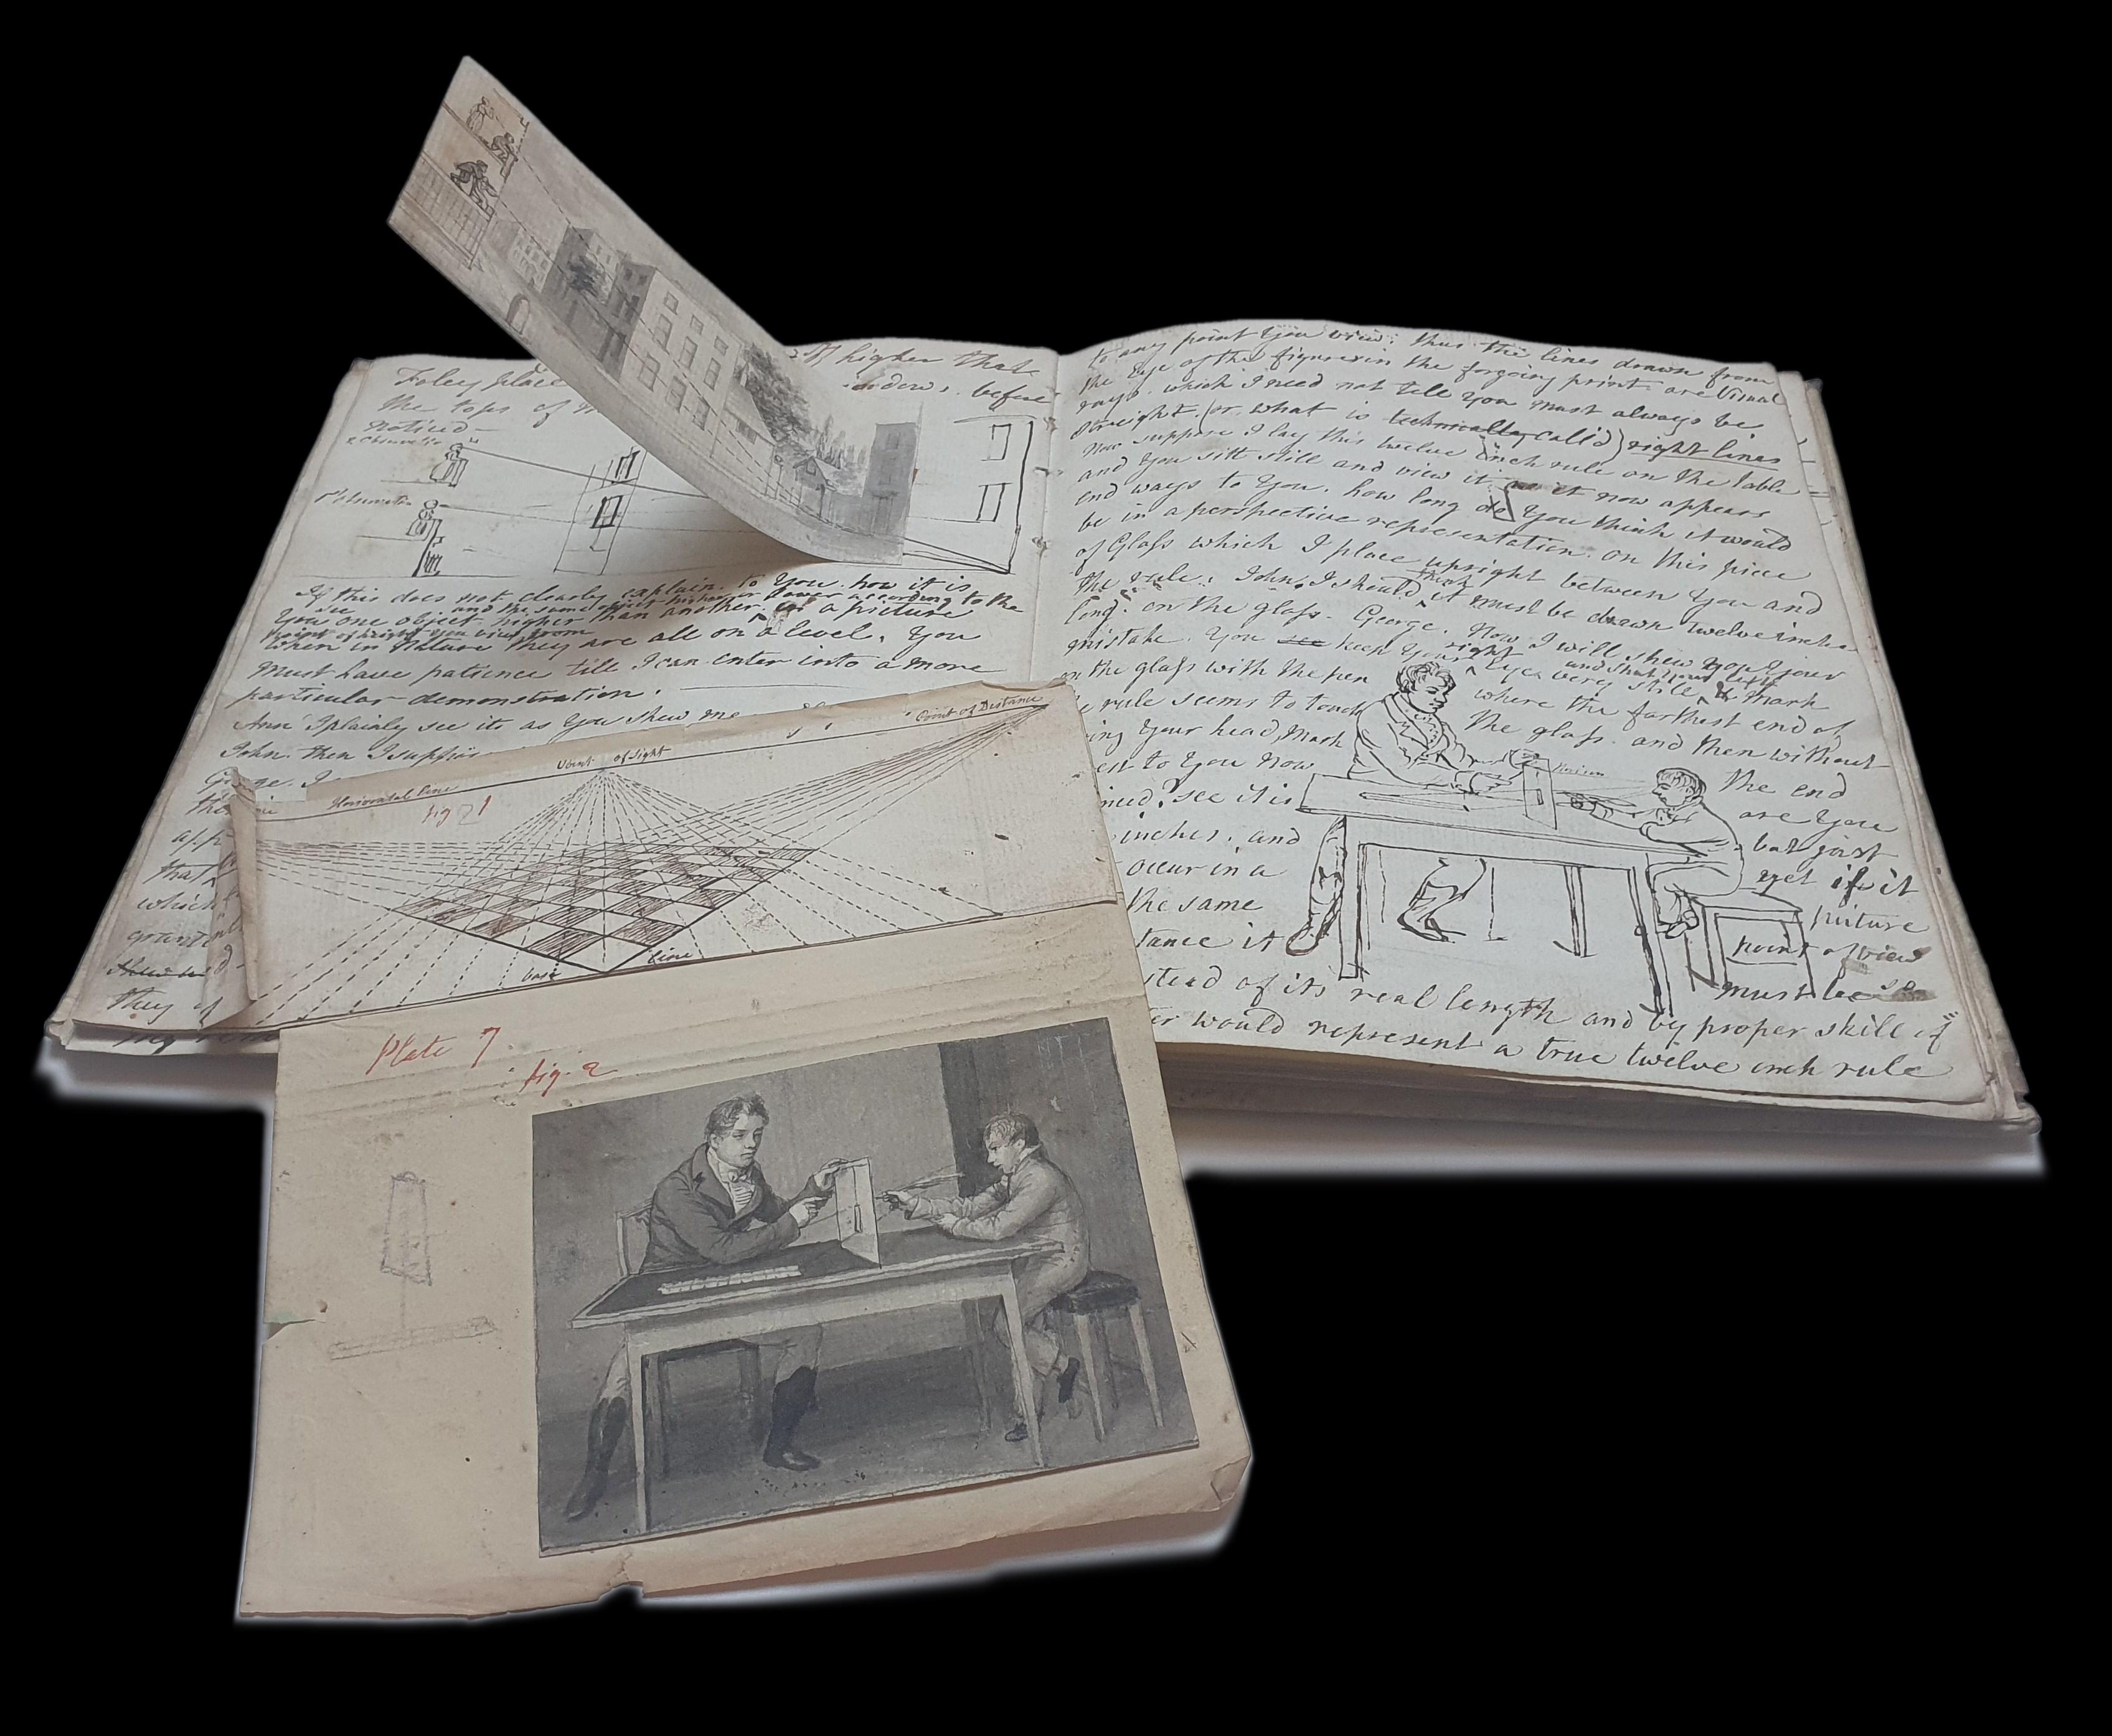 higher that
Foley place
the tops of windows. before
noticed
2 Observatr
1st Observatr
If this does not clearly explain to You how it is
You see one object higher than another in a picture
and the same object higher or lower according to the
point of hight you view from
when in Nature they are all on a level, You
must have patience till I can enter into a more
particular demonstration.
Ann I plainly see it as You shew me
John. then I suppose
George. I
that
which
they
Point of Distance
Point of Sight
Horizontal Line
fig 1
base line
Plate 7
fig. 2
to any point You view; thus the lines drawn from
the Eye of the figures in the forgoing print are Visual
rays. which I need not tell You must always be
streight. (or what is technically call'd) right lines
Now suppose I lay this twelve inch rule on the Table
and You sitt still and view it as it now appears
end ways to You. how long do You think it would
be in a perspective representation. on this piece
of Glass which I place upright between You and
the rule: John. I should think it must be drawn twelve inches
long. on the glass. George. Now I will shew You Your
mistake. You see keep Your right Eye very still and shut Your left & mark
on the glass with the pen where the farthest end of
rule seems to touch the glass. and then without
ing Your head, Mark the end
est to You Now are You
see it is but just
inches. and yet if it
occur in a picture
the same point of view
tance it must be so
stead of its real length and by proper skill if
would represent a true twelve inch rule